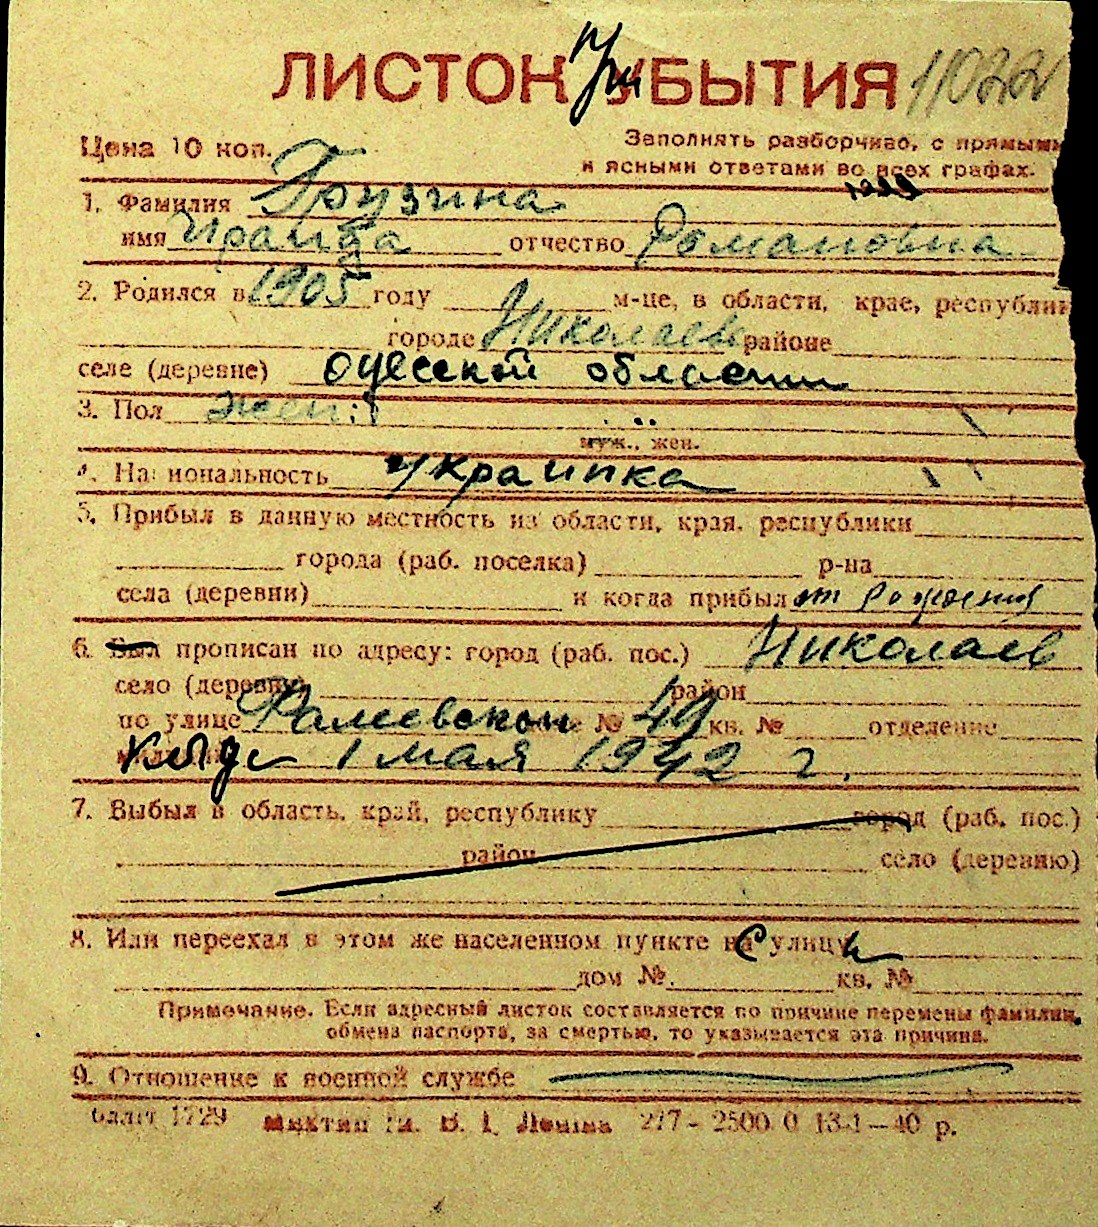 ЛИСТОК УБЫТИЯ При 11022
Цена 10 коп. Заполнять разборчиво, с прямыми
и ясными ответами во всех графах.
1. Фамилия Грузина
имя Ираида отчество Романовна
2. Родился в 1905 году м-це, в области, крае, республик
городе Николаев районе
селе (деревне) одесской области
3. Пол жен.
муж., жен.
4. Национальность украинка
5. Прибыл в данную местность из области, края, республики
города (раб. поселка) р-на
села (деревни) и когда прибыл от рождения
6. Был прописан по адресу: город (раб. пос.) Николаев
село (деревня) район
по улице Фалеевской № 49 кв. № отделение
1 мая 1942 г.
7. Выбыл в область, край, республику город (раб. пос.)
район село (деревню)
8. Или переехал в этом же населенном пункте с улицы
дом №. кв. №
Примечание. Если адресный листок составляется по причине перемены фамилии,
обмена паспорта, за смертью, то указывается эта причина.
9. Отношение к военной службе
1729 В. І. Леніна 277 - 2500.0 13-1-40 р.